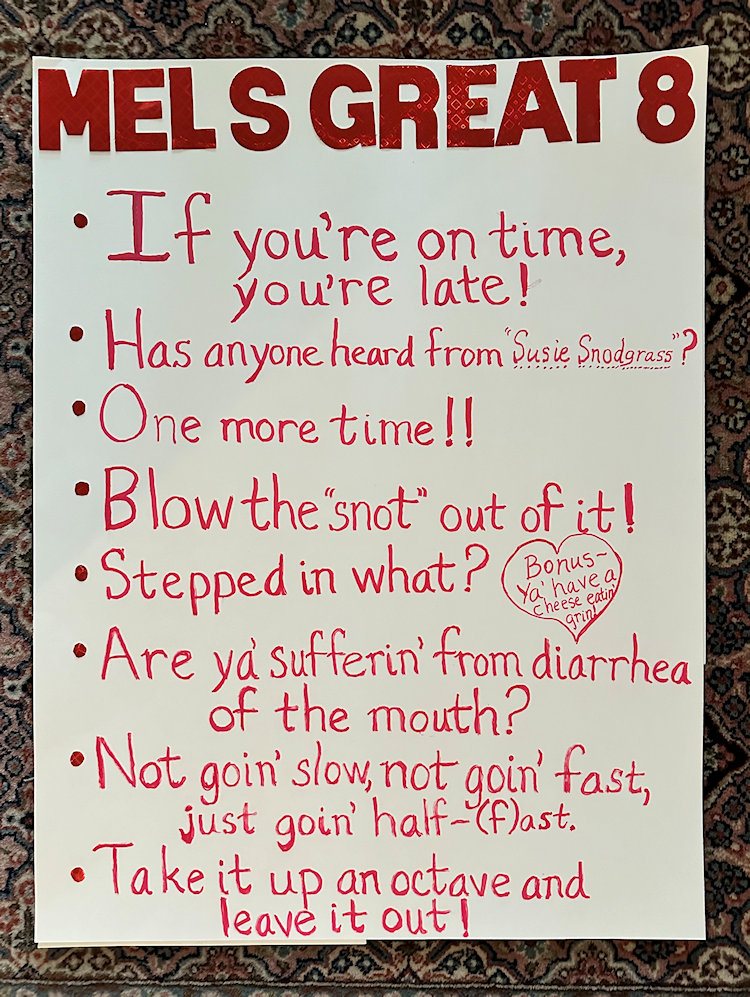 MEL S GREAT 8
• If you're on time,
you're late!
• Has anyone heard from "Susie Snodgrass"?
• One more time!!
• Blow the "snot" out of it!
• Stepped in what?
Bonus~
Ya' have a
cheese eatin'
grin!
• Are ya' sufferin' from diarrhea
of the mouth?
• Not goin' slow, not goin' fast,
just goin' half-(f)ast.
• Take it up an octave and
leave it out!